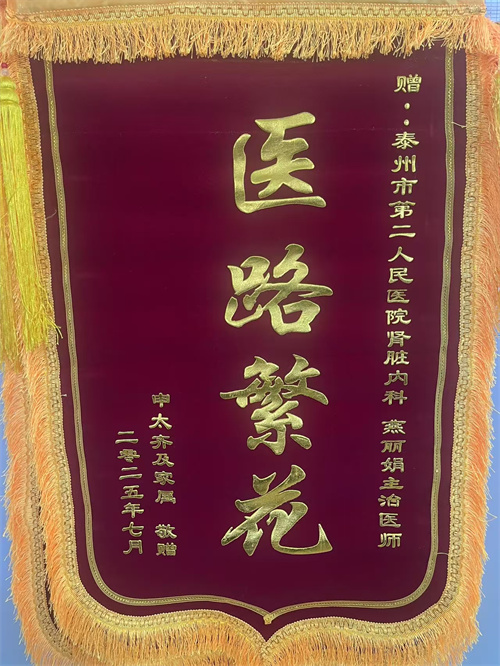 赠：泰州市第二人民医院肾脏内科 燕丽娟主治医师
医路繁花
申太齐及家属 敬赠
二零二五年七月